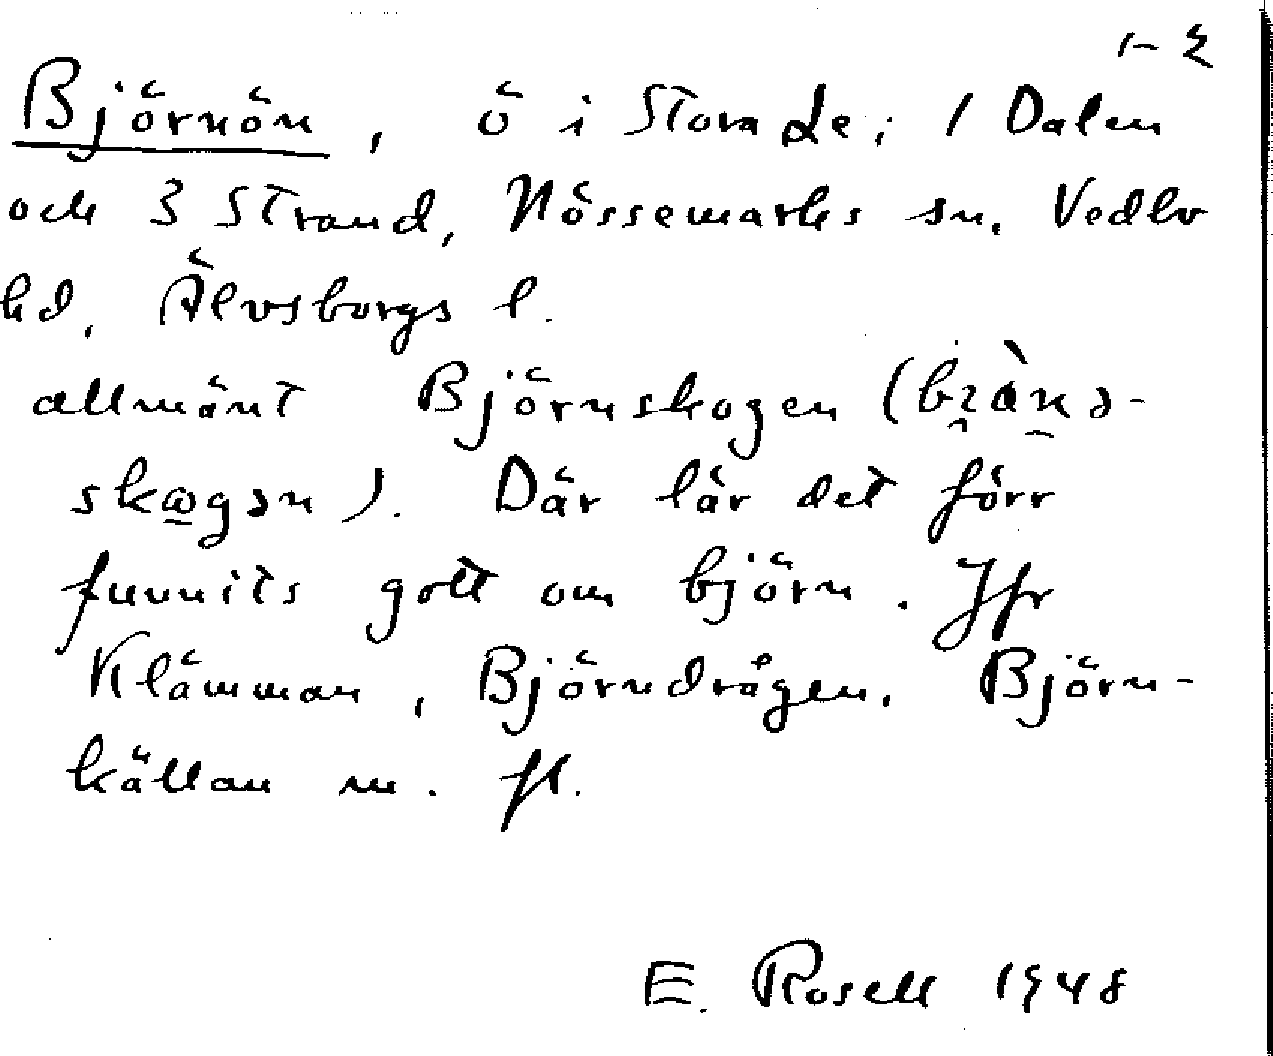 1-2
Björnön, ö i Stora Le; 1 Dalen
och 3 Strand, Nössemarks sn, Vedbo
hd, Älvsborgs l.
allmänt Björnskogen (
). Där lär det förr
funnits gott om björn. Jfr
Klämman, Björndrågen, Björn-
källan m. fl.
E. Rosell 1948